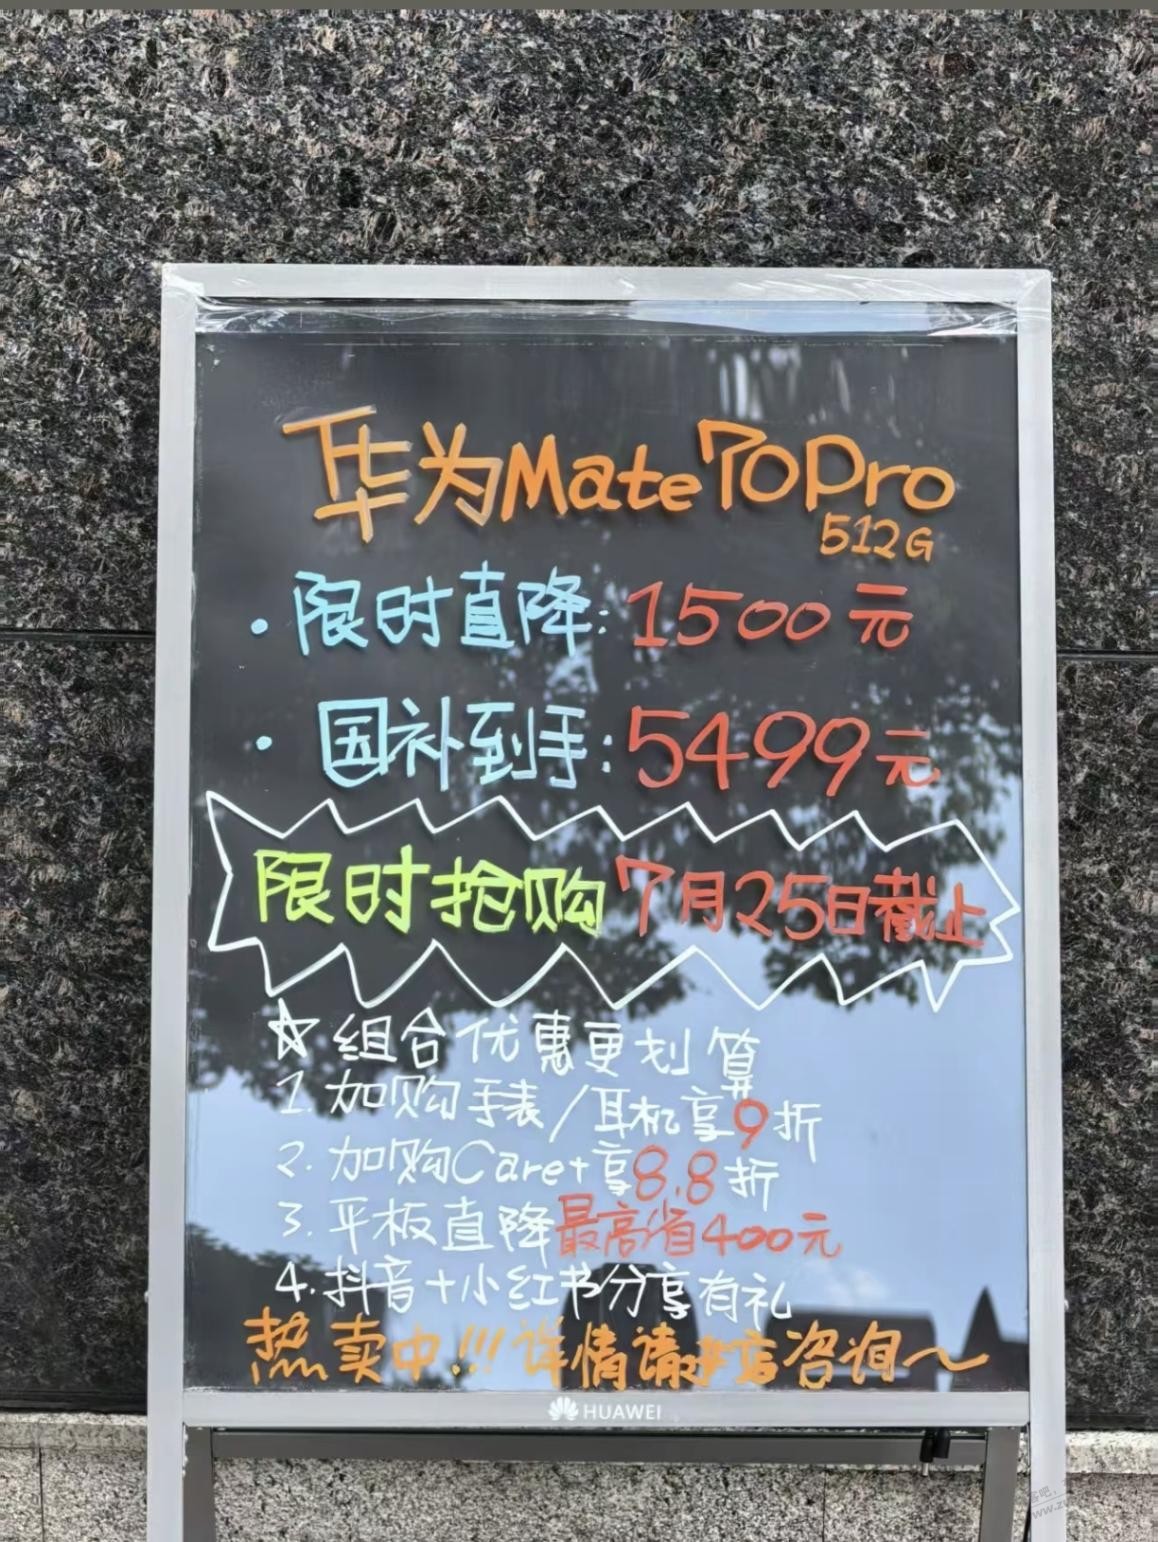 华为Mate70Pro
512G
·限时直降:1500元
·国补到手:5499元
限时抢购7月25日截止
☆组合优惠更划算
1.加购手表/耳机享9折
2.加购Care+享8.8折
3.平板直降最高省400元
4.抖音+小红书分享有礼
热卖中!!!详情请进店咨询~
HUAWEI